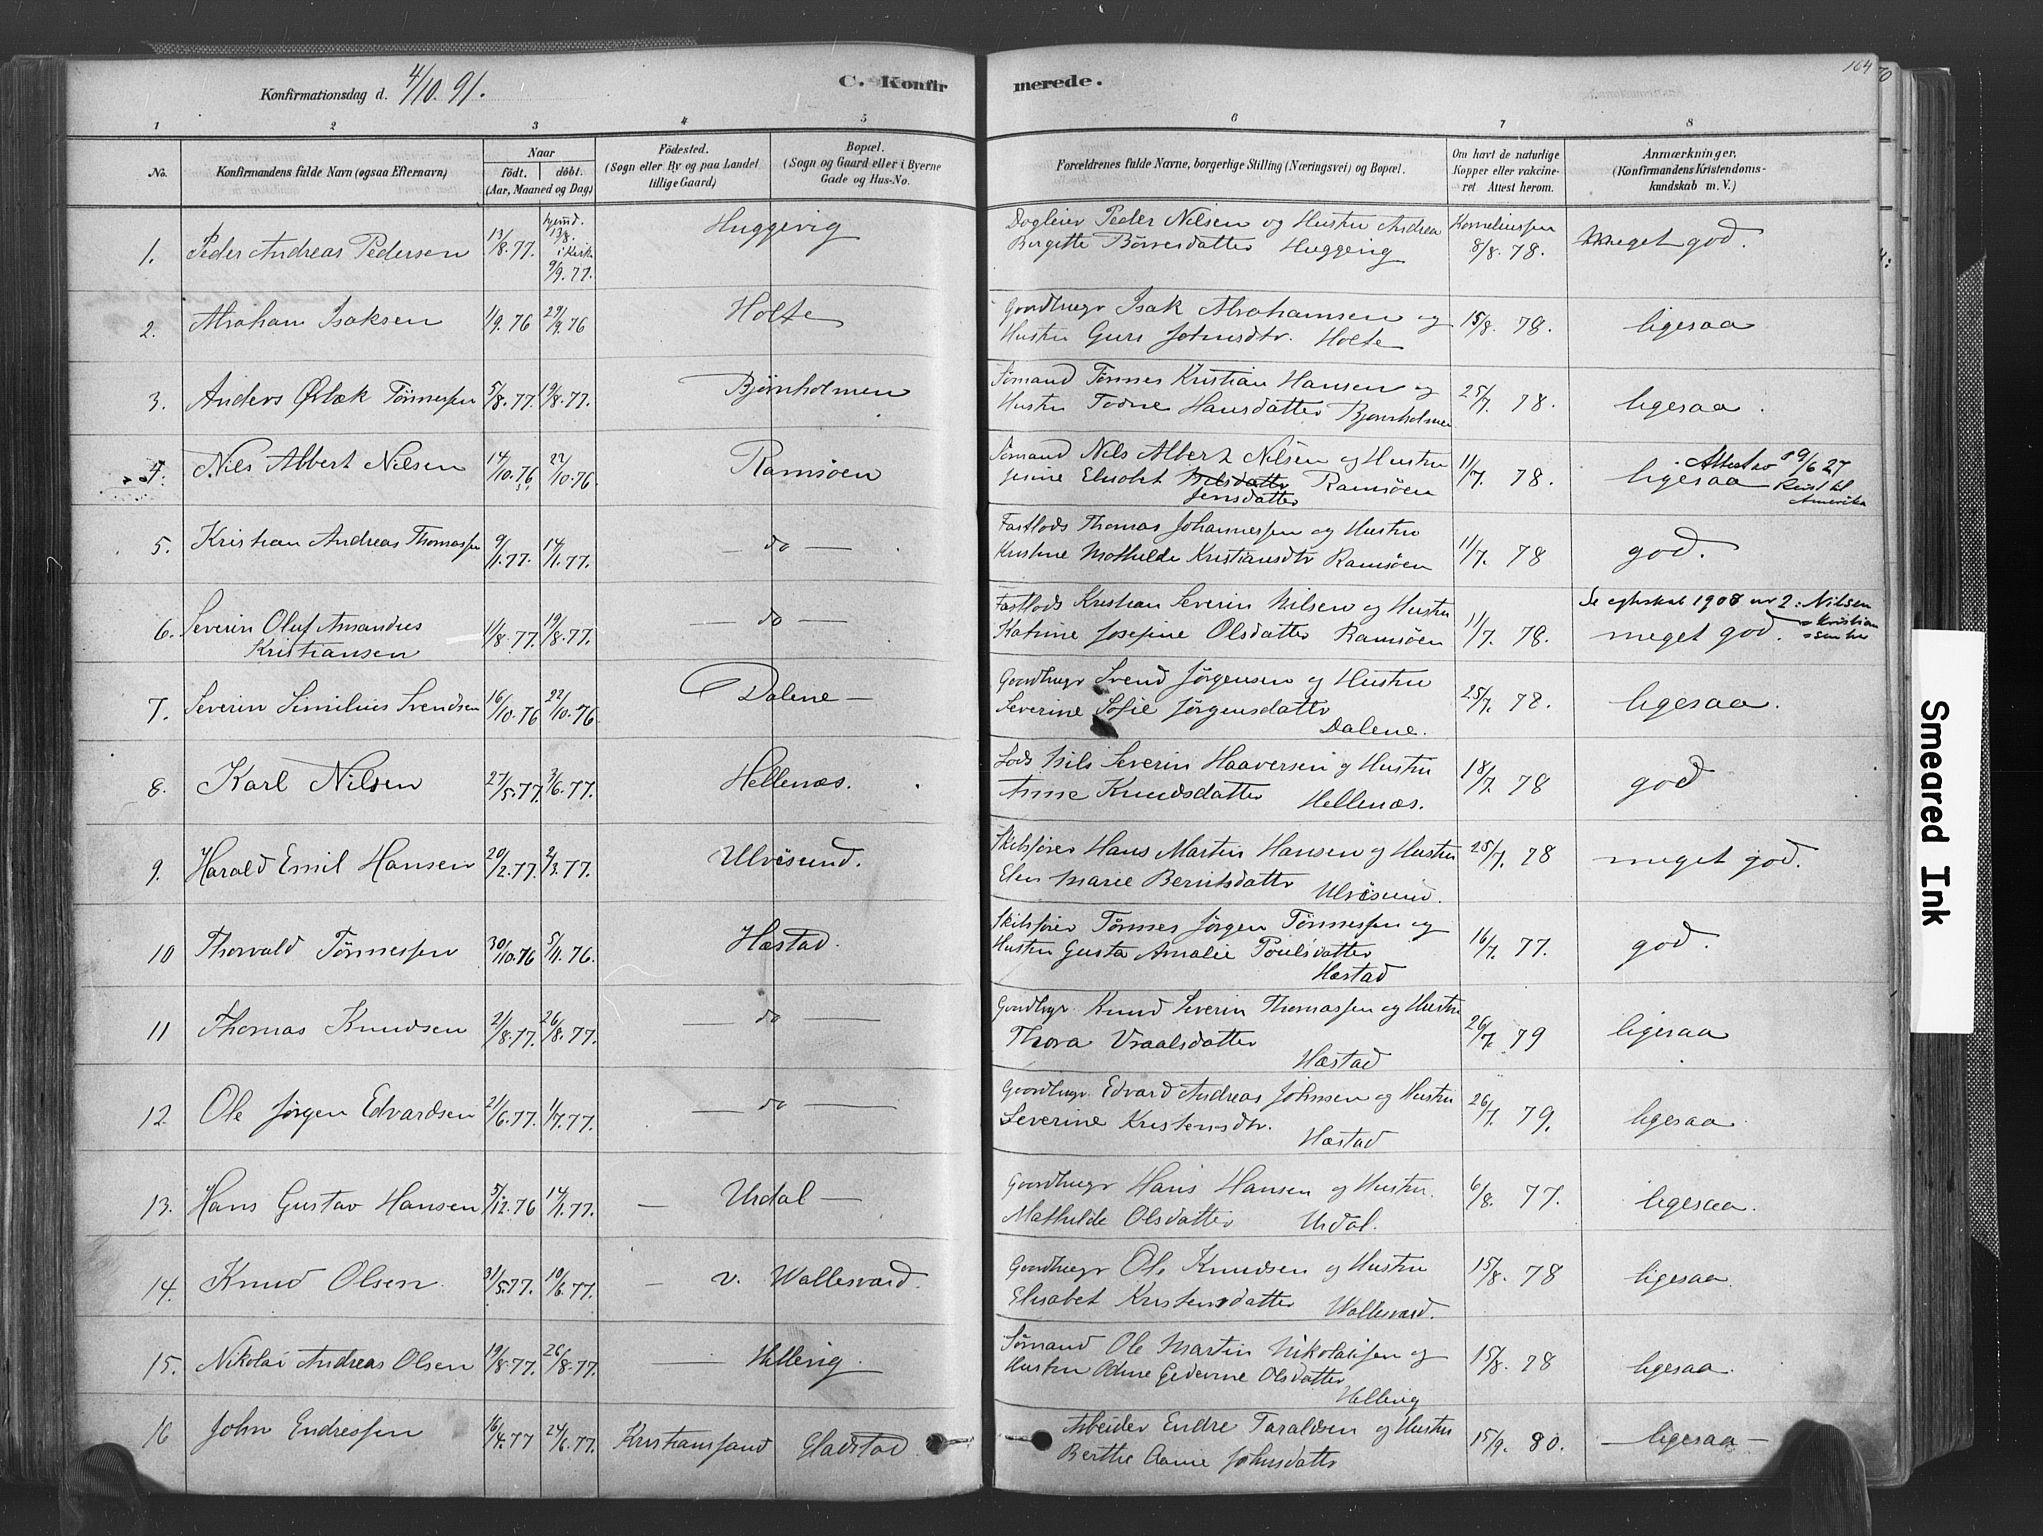 Konfirmationsdag d. 4/10. 91.
C. Konfirmerede.
164
1 2 3 4 5 6 7 8
No.
Konfirmandens fulde Navn (ogsaa Efternavn)
Naar
født. døbt.
(Aar, Maaned og Dag)
Fødested.
(Sogn eller By og paa Landet
tillige Gaard)
Bopæl.
(Sogn og Gaard eller i Byerne
Gade og Hus-No.
Forældrenes fulde Navne, borgerlige Stilling (Næringsvei) og Bopæl.
Om havt de naturlige
Kopper eller vakcine-
ret Attest herom.
Anmærkninger.
(Konfirmandens Kristendoms-
kundskab m. V.)
1. Peder Andreas Pedersen 13/8.77. hjemd. 13/8. i Kirk. 9/9.77. Huggevig
Peder Nilsen og Hustru Andrea
Bergette Børresdatter Huggevig 8/8. 78. Meget god.
2. Abraham Isaksen 1/9.76 29/9.76 Holte
Gaardbrugr Isak Abrahamsen og
Hustru Guri Johnsdtr. Holte 15/8. 78. ligesaa
3. Anders Ørbæk Tönnessen 5/8.77. 19/8.77. Bjørnholmen
Sømand Tønnes Kristian Hansen og
Hustru Todne Hansdatter Bjørnholmen 25/7. 78. ligesaa.
4. Nils Albert Nilsen 14/10.76 22/10.76 Ramsøen
Sømand Nils Albert Nilsen og Hustru
Jesine Elisabt Nilsdatter Ramsøen
Jensdatter 11/7. 78. ligesaa
9/6 27
Reist til
Amerika
5. Kristian Andreas Thomassen 9/1.77. 14/1.77. — do —
Fastlods Thomas Johannessen og Hustru
Kristine Mathilde Kristiansdtr Ramsøen 11/7. 78 god.
6. Severin Oluf Amandus
Kristiansen 1/8.77. 19/8.77. — do —
Fastlods Kristian Severin Nilsen og Hustru
Katrine Josefine Olsdatter Ramsøen 11/7. 78. meget god.
Se egteskab 1908 nr 2: Nilsen
Kristian
7. Severin Similius Svendsen 16/10.76 22/10.76 Dalene —
Gaardbrugr Svend Jørgensen og Hustru
Severine Sofie Jørgensdattr
Dalene. 25/7. 78. ligesaa.
8. Karl Nilsen 27/5.77. 3/6.77. Hellenæs.
Lods Nils Severin Haaversen og Hustru
Anne Knudsdatter Hellenæs. 18/7. 78 god
9. Harald Emil Hansen 20/2.77. 2/3.77. Ulvøsund.
Skibsfører Hans Martin Hansen og Hustru
Elen Marie Berntsdattr Ulvøsund. 25/7. 78 meget god.
10 Thorvald Tönnessen 30/10.76 5/11.76. Hæstad.
Skibsfører Tønnes Jørgen Tønnessen og
Hustru Gusta Amalie Poulsdatter
Hæstad 16/7. 77. god.
11 Thomas Knudsen 21/8.77. 26/8.77. — do —
Gaardbrgr. Knud Severin Thomassen og Hustru
Thora Vraalsdatter
Hæstad 26/7. 79 ligesaa
12. Ole Jørgen Edvardsen 21/6.77. 1/7.77. — do —
Gaardbrugr. Edvard Andreas Johnsen og Hustru
Severine Kristensdtr.
Hæstad 26/7. 79. ligesaa.
13. Hans Gustav Hansen 5/12.76 14/1.77. — Urdal —
Gaardbrugr Hans Hansen og Hustru.
Mathilde Olsdatter Urdal. 6/8. 77. ligesaa.
14. Knud Olsen. 31/5.77. 10/6.77. — v. Wallesværd.
Gaardbrugr Ole Knudsen og Hustru
Elisabet Kristensdatter Wallesværd. 15/8. 78 ligesaa.
15. Nikolai Andreas Olsen 19/8.77. 26/8.77. — Hellevig.
Sømand Ole Martin Nikolaisen og
Hustru Olsdatter
Hellevig 15/8. 78 ligesaa.
16 John Endressen 16/4.77 24/6.77. Kristianssand Gladstad.
Arbeider Endre Taraldsen og Hustru
Berthe Aanne Johnsdattr 15/9. 80. —ligesaa—
Smeared Ink